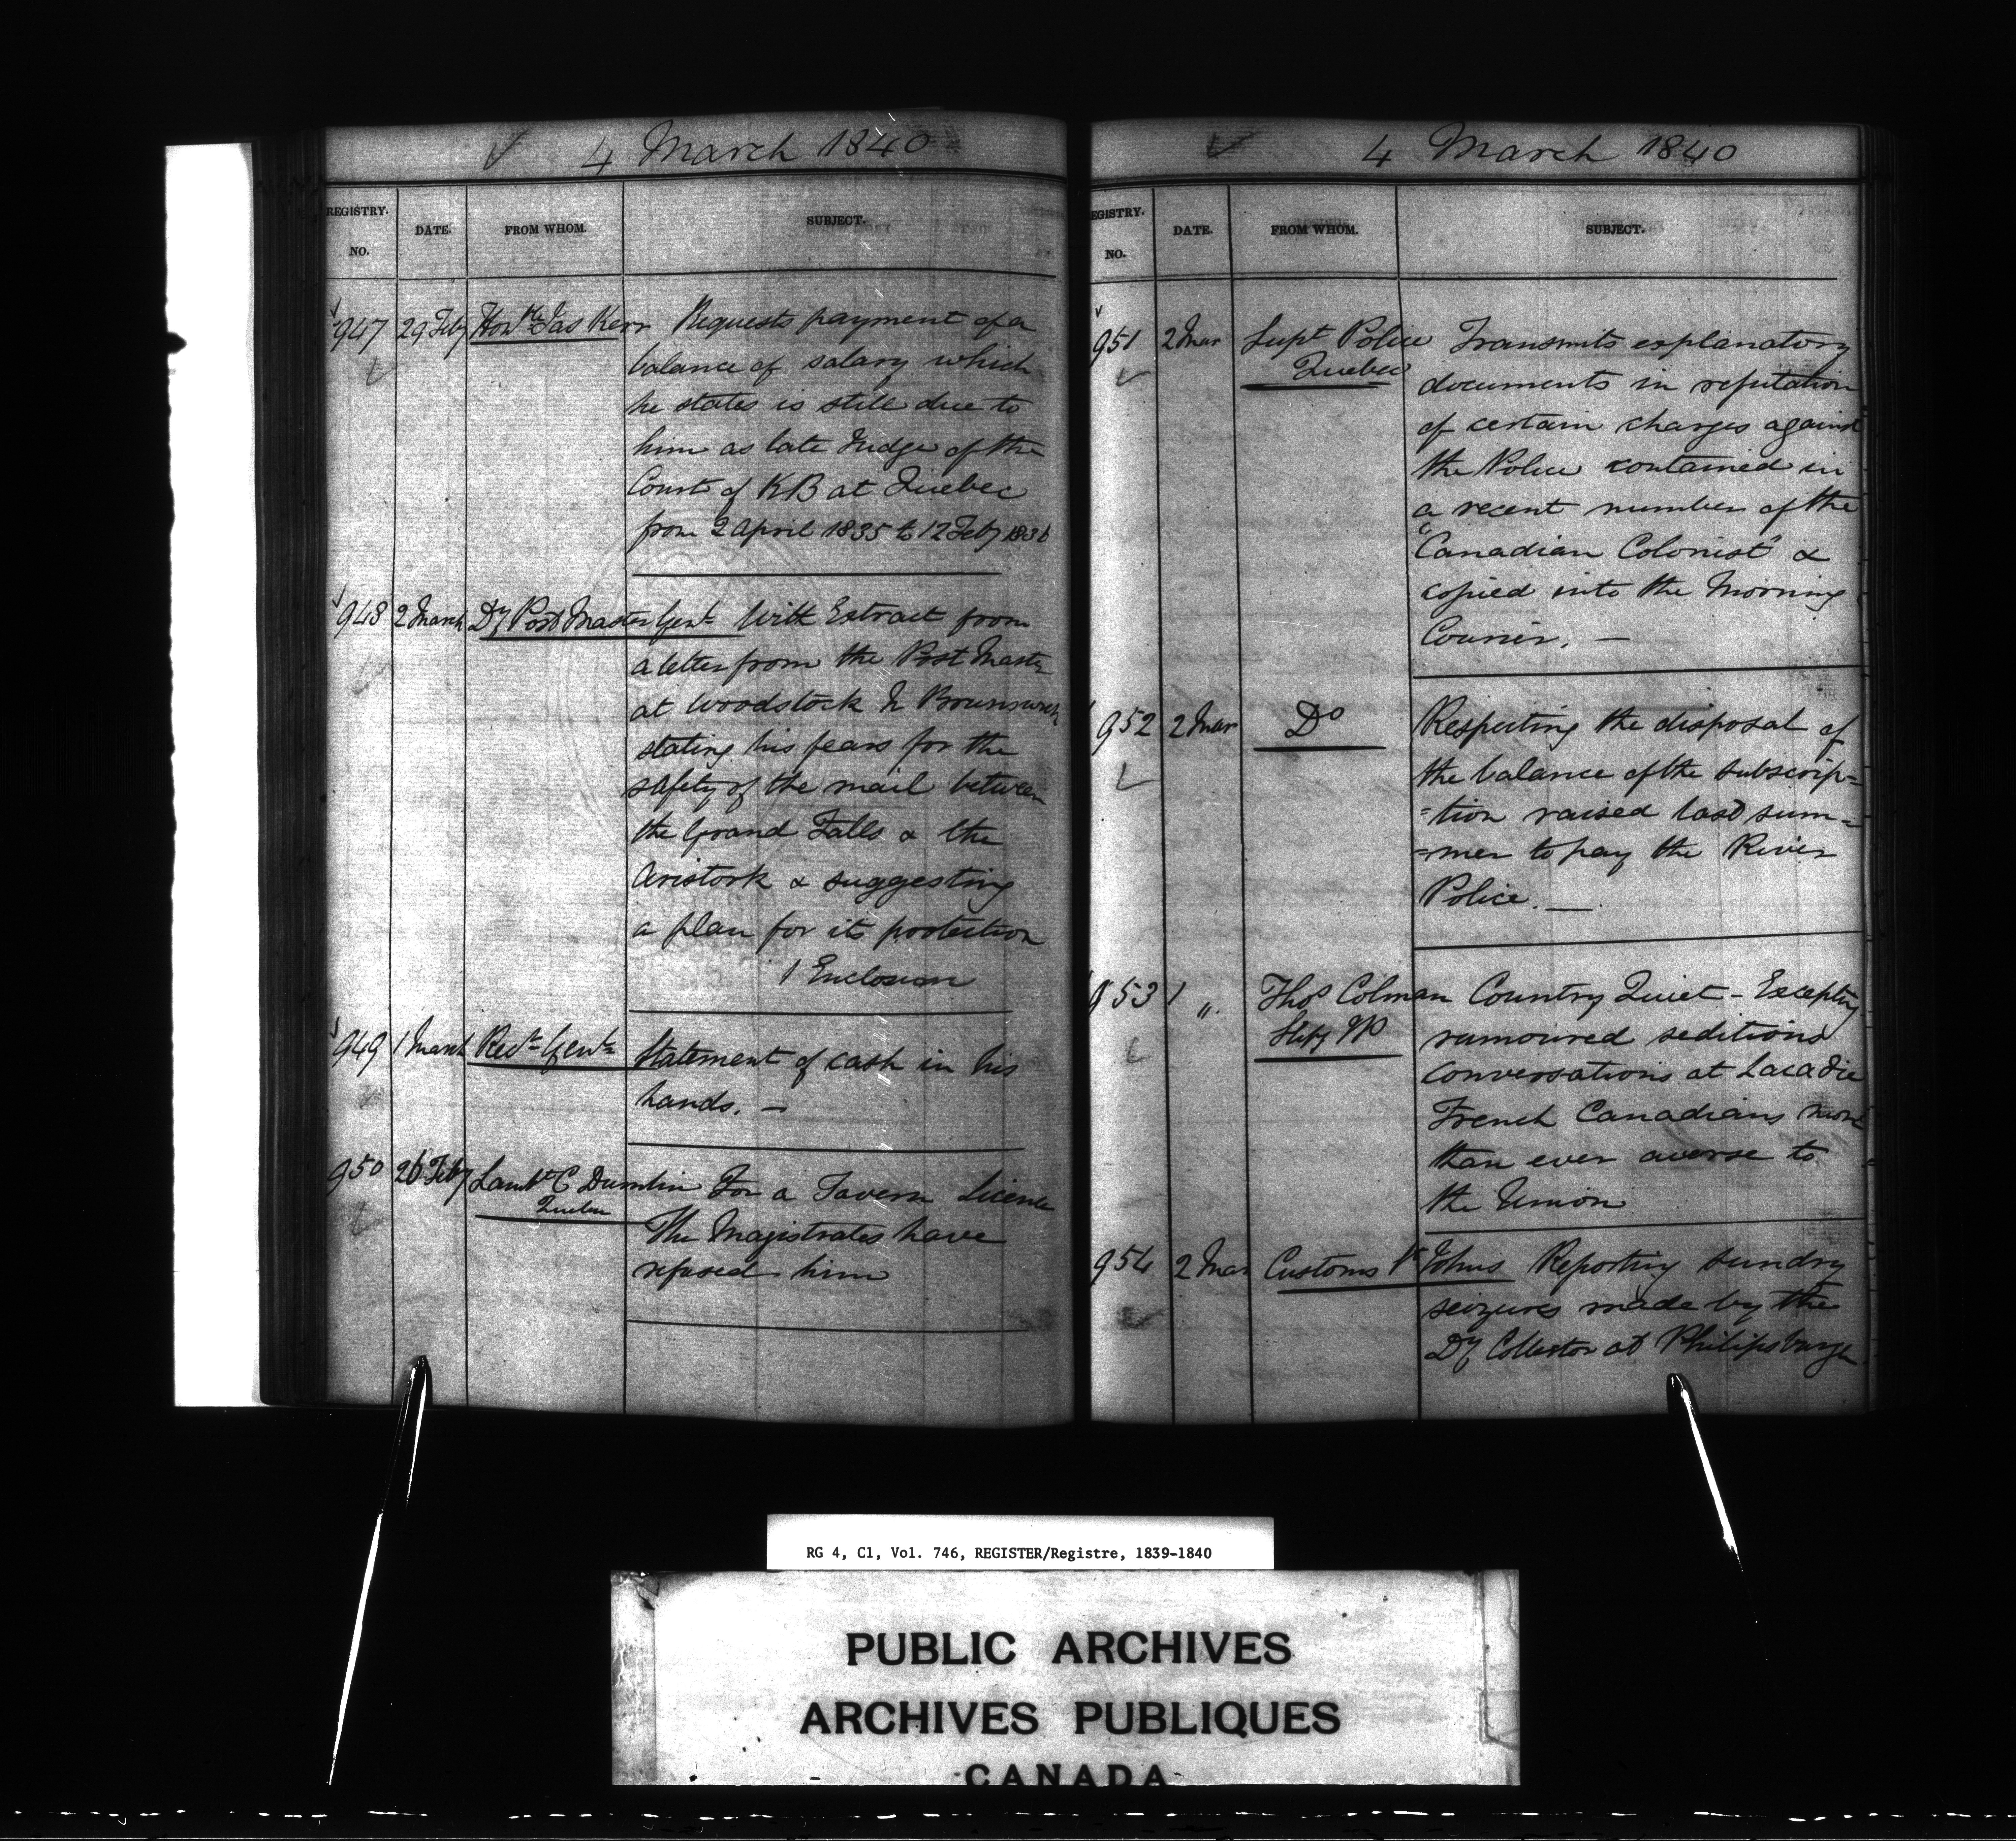 4 March 1840
REGISTRY. NO. DATE. FROM WHOM. SUBJECT.
947 29 Feby Honble Jas Kerr Requests payment of a
balance of salary which
he states is still due to
him as late Judge of the
Court of KB at Quebec
from 2 April 1835 to 12 Feby 1836
948 2 March Dy Post Master Genl With Extract from
a letter from the Post Master
at Woodstock N Brunswick
stating his fears for the
safety of the mail between
the Grand Falls & the
Aristook & suggesting
a plan for its protection
1 Enclosure
949 1 March Recr Genl Statement of cash in his
hands. —
950 26 Feby C For a Tavern Licence
Quebec
The Magistrates have
refused him
4 March 1840
REGISTRY. NO. DATE. FROM WHOM. SUBJECT.
951 2 Mar Supt Police Transmits explanatory
Quebec documents in refutation
of certain charges against
the Police contained in
a recent number of the
"Canadian Colonist" &
copied into the Morning
Courier. —
952 2 Mar Do Respecting the disposal of
the balance of the subscrip=
=tion raised last sum=
=mer to pay the River
Police. —
953 1 „ Thos Colman Country Quiet - Excepting
rumoured seditious
conversations at Lacadie
French Canadians more
than ever averse to
the Union
954 2 Mar Customs St Johns Reporting sundry
seizures made by the
Dy Collector at Philipsburgh
RG 4, C1, Vol. 746, REGISTER/Registre, 1839-1840
PUBLIC ARCHIVES
ARCHIVES PUBLIQUES
CANADA